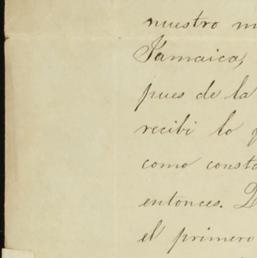 nuestro m
Jamaica,
pues de la
recibi lo
como const
entonces.
el primero